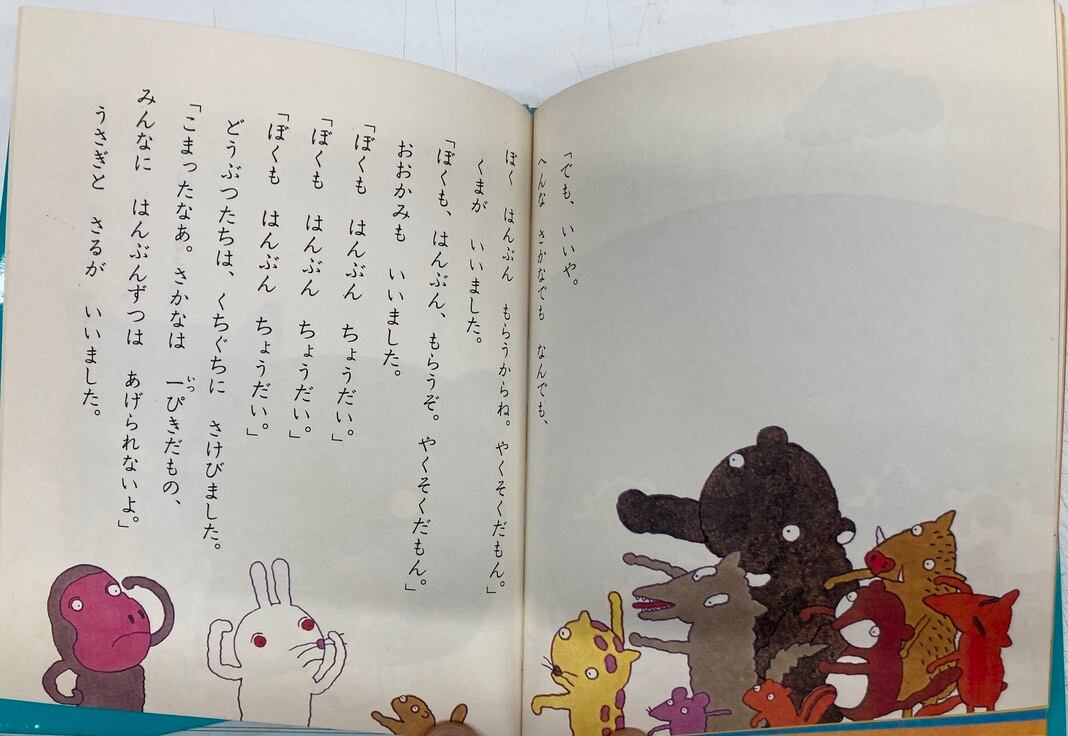 「でも、いいや。
へんな さかなでも なんでも、
ぼく はんぶん もらうからね。やくそくだもん。」
くまが いいました。
「ぼくも、はんぶん、もらうぞ。やくそくだもん。」
おおかみも いいました。
「ぼくも はんぶん ちょうだい。」
「ぼくも はんぶん ちょうだい。」
「ぼくも はんぶん ちょうだい。」
どうぶつたちは、くちぐちに さけびました。
「こまったなあ。さかなは 一ぴきだもの、
いっ
みんなに はんぶんずつは あげられないよ。」
うさぎと さるが いいました。